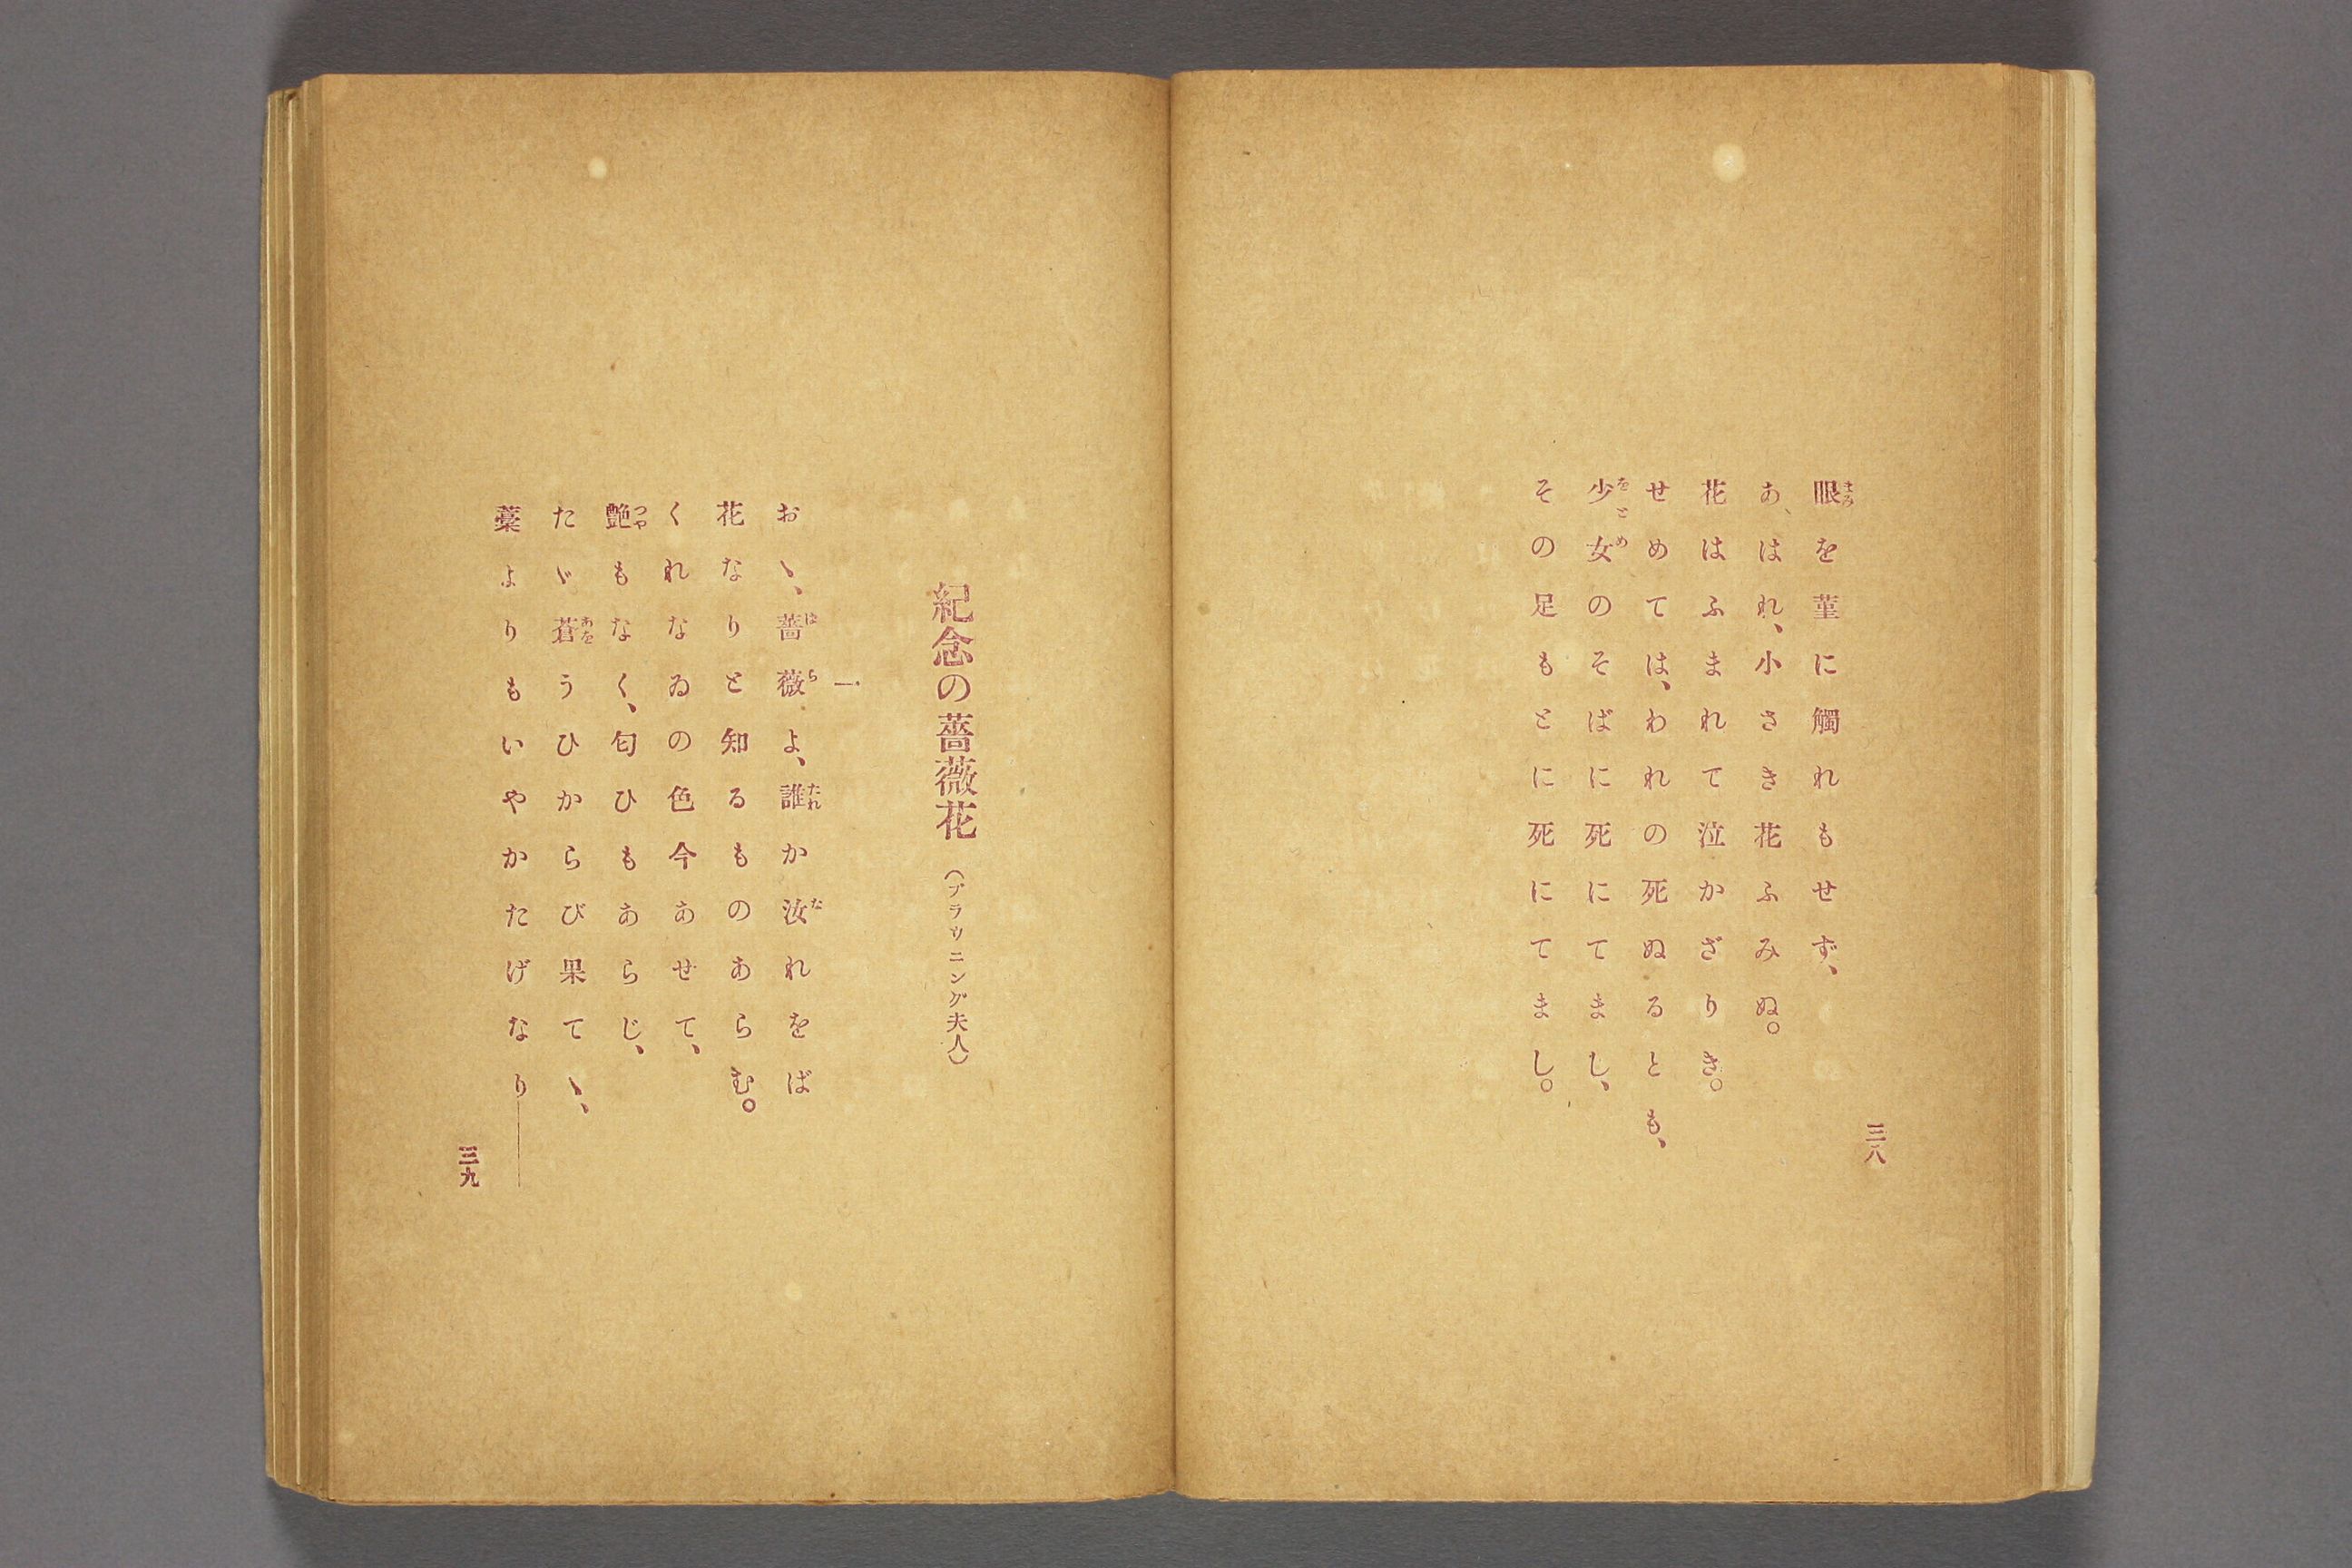 眼を菫に觸れもせず、
あゝはれ、小さき花ふみぬ。
花はふまれて泣かざりき。
せめては、われの死ぬるとも、
少女のそばに死にてまし、
その足もとに死にてまし。
三八
紀念の薔薇花(ブラウニング夫人)
一
おゝ、薔薇よ、誰か汝れをば
花なりと知るものあらむ。
くれなゐの色今あせて、
艶もなく、匂ひもあらじ、
たゞ蒼うひからび果てゝ、
藁よりもいやかたげなり——
三九